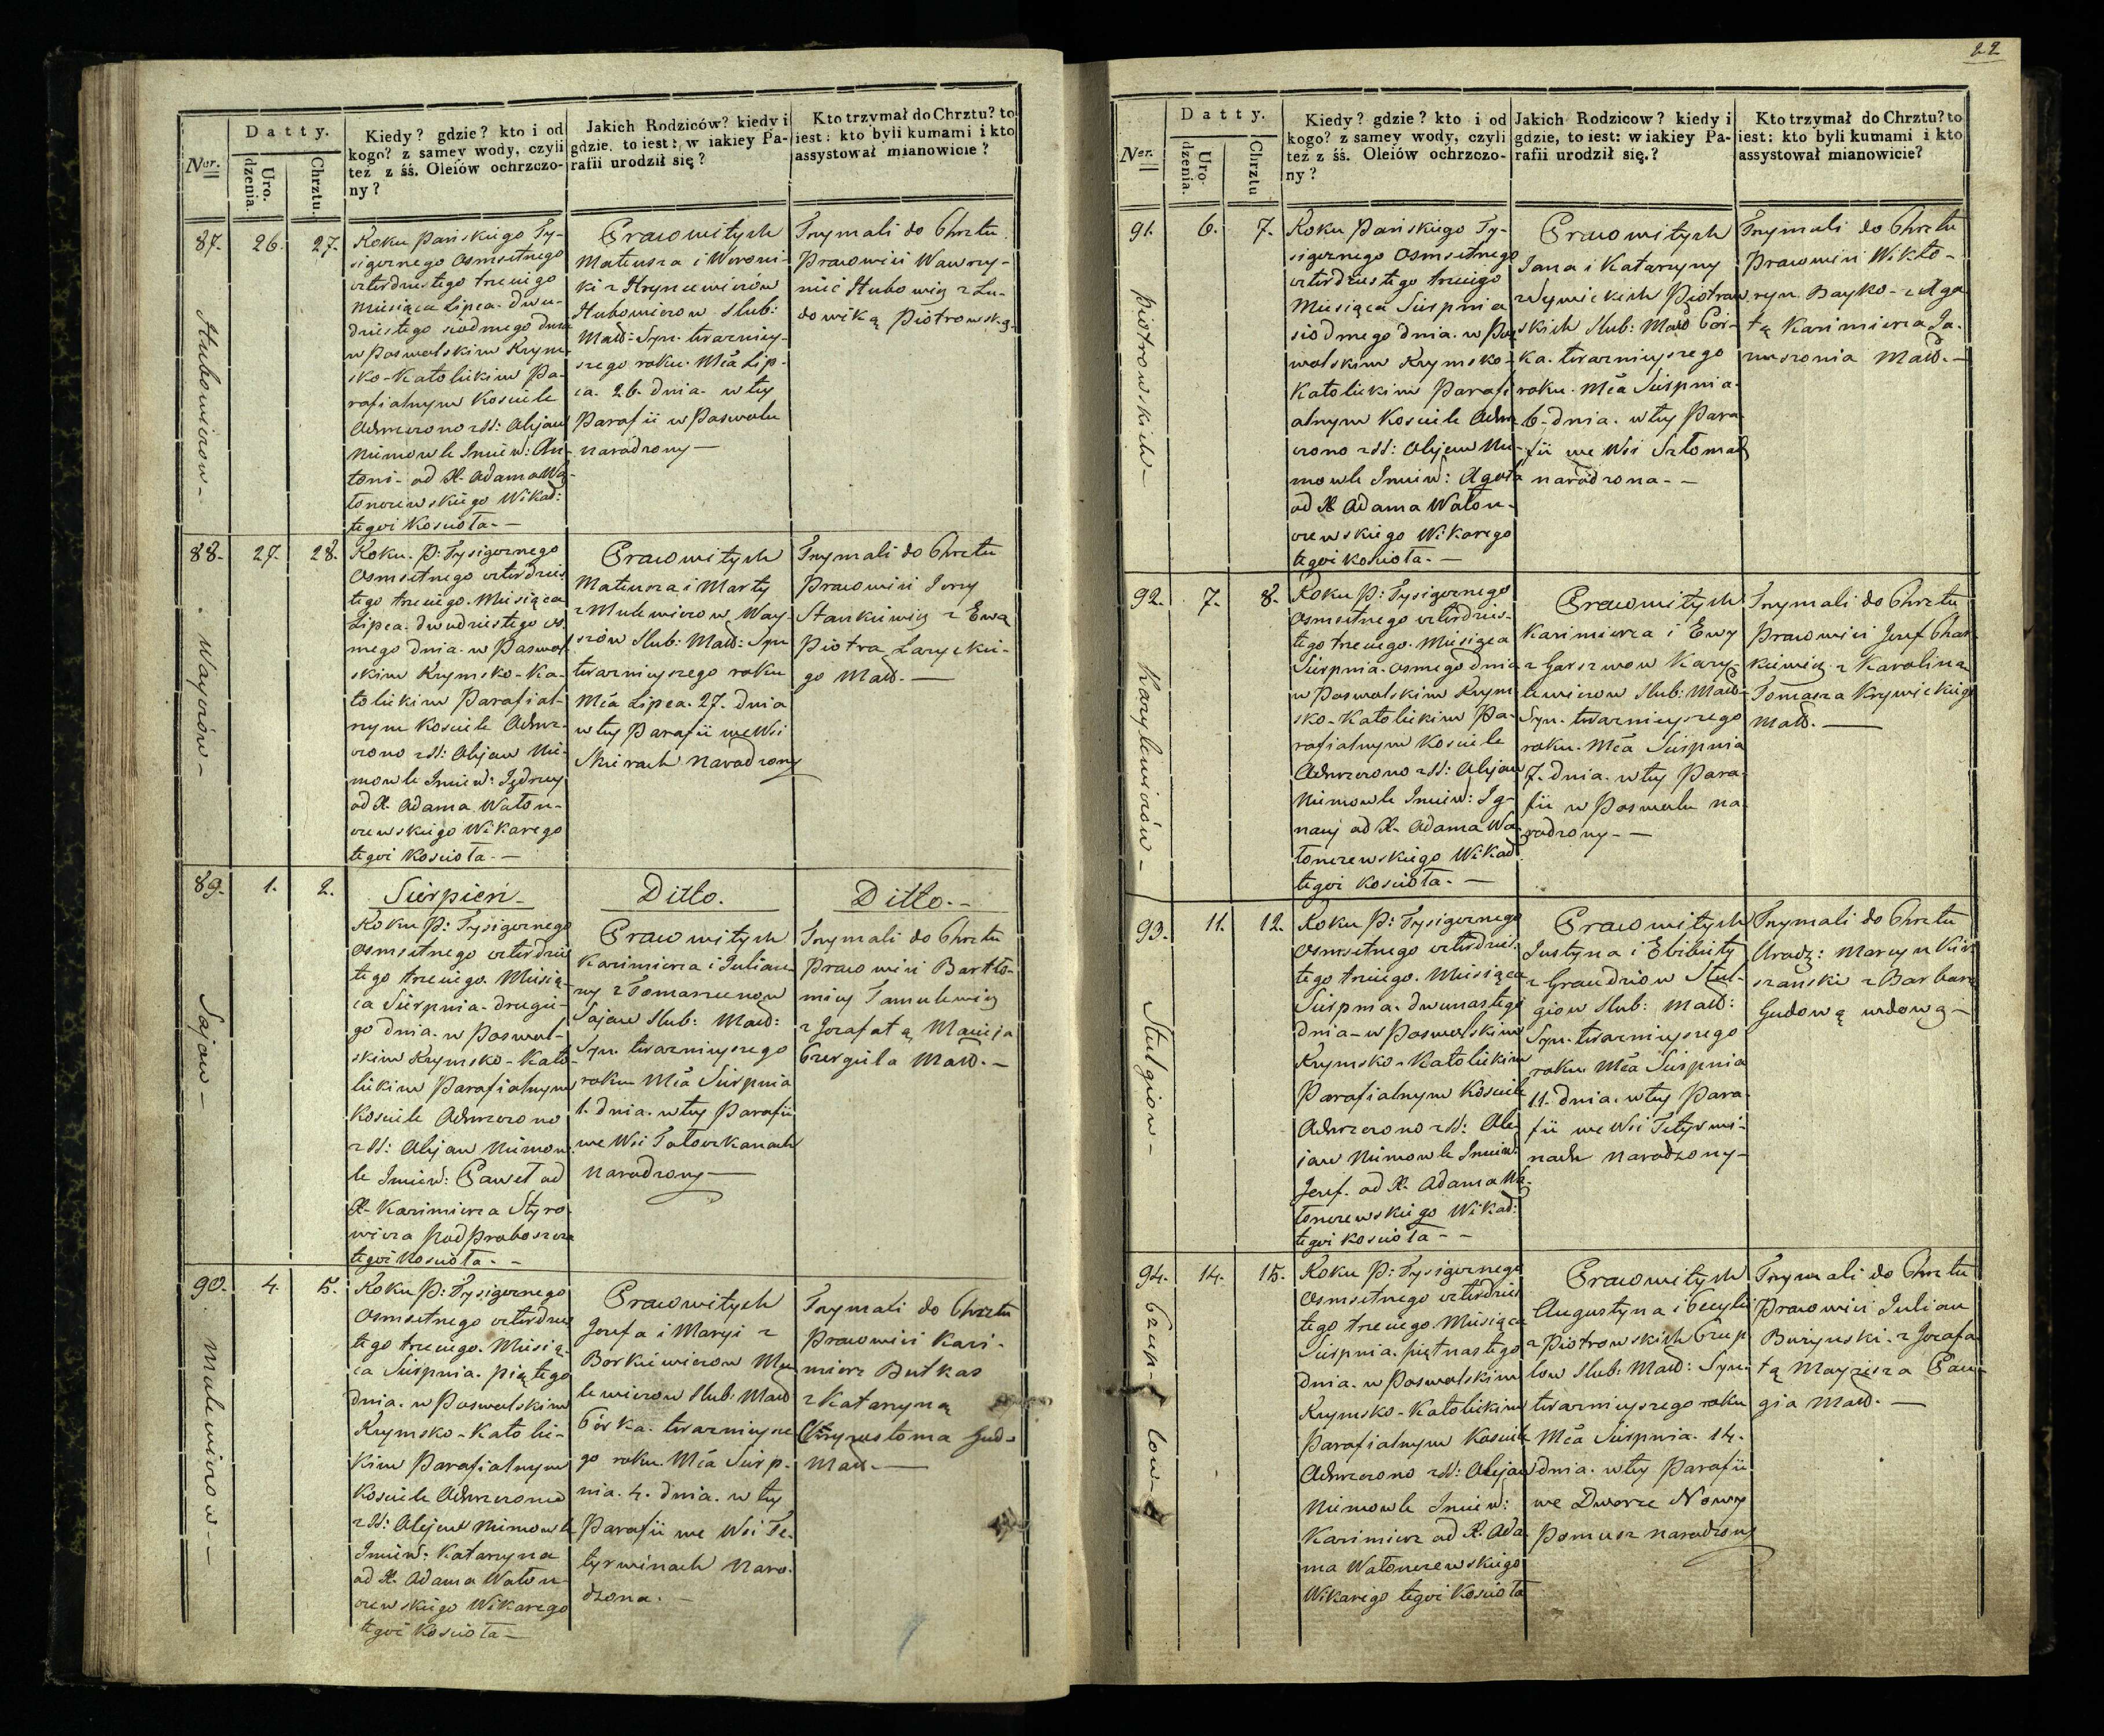 Datty.
Ner.
Uro-
dzenia.
Chrztu.
Kiedy? gdzie? kto i od
kogo? z samey wody, czyli
też z śś. Oleiów ochrzczo-
ny?
Jakich Rodziców? kiedy i
gdzie. to iest: w iakiey Pa-
rafii urodził się?
Kto trzymał do Chrztu? to
iest: kto byli kumami i kto
assystował mianowicie?
87.
26.
27.
Hubowiczow -
Roku Pańskiego Ty-
siącznego Osmsetnego
czterdziestego trzeciego
Miesiąca Lipca. dwu-
dziestego siodmego dnia
w Poswolskim Rzym-
sko-Katolickim Pa-
rafialnym Kosciele
Ochrzczono z SS: Olejów
Niemowle Imien: An-
toni - od X. Adama Wa-
łonczewskiego Wikar:
tegoż Koscioła. -
Prawowitych
Mateusza i Weroni-
ki z Hryncewiczów
Hubowiczow Slub:
Małż: Syn. terazniey-
szego roku. Mca Lip-
ca. 26. dnia. w tey
Parafii w Poswolu
narodzony -
Trzymali do Chrztu
Pracowici Wawrzy-
niec Hubowicz z Lu-
dowiką Piotrowską.
88.
27.
28.
Wayciów -
Roku. P: Tysiącznego
Osmsetnego czterdzies-
tego trzeciego. Miesiąca
Lipca. dwudziestego os-
mego dnia. w Poswol-
skim Rzymsko-Ka-
tolickim Parafial-
nym Kosciele Ochrz-
czono z SS: Olejow Nie-
mowle Imien: Jędrzey
od X. Adama Wałon-
czewskiego Wikarego
tegoż Koscioła. -
Prawowitych
Mateusza i Marty
z Mulewiczow Way-
ciów Slub: Małż: Syn
teraznieyszego roku
Mca Lipca. 27. dnia
w tey Parafii we Wsi
Skierach narodzony
Trzymali do Chrztu
Pracowici Jerzy
Stankiewicz z Ewą
Piotra Laryckie-
go Małż. -
89.
1.
2.
Sajow -
Sierpień -
Roku P: Tysiącznego
Osmsetnego czterdzies
tego trzeciego. Miesią-
ca Sierpnia. drugie-
go dnia. w Poswol-
skim Rzymsko-Kato-
lickim Parafialnym
Kosciele Ochrzczono
z SS: Olejow Niemow-
le Imien: Paweł od
X. Kazimierza Styro-
wicza Podproboszcza
tegoż Kosciola. -
Ditto.
Prawowitych
Kazimierza i Julian-
ny z Tomaszunow
Sajow Slub: Małż:
Syn. teraznieyszego
roku Mca Sierpnia
1. dnia. w tey Parafii
we Wsi Tołoczkanach
narodzony -
Ditto. -
Trzymali do Chrztu
Pracowici Bartło-
miey Tamulewicz
z Jozafatą Macieja
Czergiela Małż. -
90.
4.
5.
Mulewiczow -
Roku P: Tysiącznego
Osmsetnego czterdzies
tego trzeciego. Miesią-
ca Sierpnia. piątego
dnia. w Poswolskim
Rzymsko-Katolic-
kim Parafialnym
Kosciele Ochrzczono
z SS: Olejow Niemowle
Imien: Katarzyna
od X. Adama Wałon-
czewskiego Wikarego
tegoż Kosciola -
Prawowitych
Jozefa i Maryi z
Borkiewiczow Mu-
lewiczow Slub: Małż
Córka. teraznieysze
go roku. Mca Sierp-
nia. 4. dnia. w tey
Parafii we Wsi Te-
tyrwinach naro-
dzona. -
Trzymali do Chrztu
Pracowici Kazi-
mierz Butkas
z Katarzyną
Chryzostoma Gud-
Małż. -
22
Datty.
Ner.
Uro-
dzenia.
Chrztu
Kiedy? gdzie? kto i od
kogo? z samey wody, czyli
też z śś. Oleiów ochrzczo-
ny?
Jakich Rodzicow? kiedy i
gdzie, to iest: w iakiey Pa-
rafii urodził się.?
Kto trzymał do Chrztu? to
iest: kto byli kumami i kto
assystował mianowicie?
91.
6.
7.
Piotrowskich -
Roku Pańskiego Ty-
siącznego Osmsetnego
czterdziestego trzeciego
Miesiąca Sierpnia
siodmego dnia. w Pos-
wolskim Rzymsko-
Katolickim Parafi-
alnym Kosciele Ochrz-
czono z SS: Olejow Nie-
mowle Imien: Agata
od X Adama Wałon-
czewskiego Wikarego
tegoż Kosciola. -
Prawowitych
Jana i Katarzyny
z Rymickich Piotrow-
skich Slub: Małż Cór-
ka. teraznieyszego
roku. Mca Sierpnia.
6. dnia. w tey Para-
fii we Wsi Sztomal
narodzona. -
Trzymali do Chrztu
Pracowici Wikto-
ryn Bayko - z Aga-
tą Kazimierza Ja-
nuszonia Małż. -
92.
7.
8.
Karylewiczów -
Roku P: Tysiącznego
Osmsetnego czterdzies-
tego trzeciego. Miesiąca
Sierpnia. osmego dnia
w Poswolskim Rzym-
sko-Katolickim Pa-
rafialnym Kosciele
Ochrzczono z SS: Olejow
Niemowle Imien: Ig-
nacy od X. Adama Wa-
łonczewskiego Wikar
tegoż Kosciola. -
Prawowitych
Kazimierza i Ewy
z Garszwow Kary-
lewiczow Slub: Małż-
Syn. teraznieyszego
roku. Mca Sierpnia
7. dnia. w tey Para-
fii w Poswolu na
rodzony. -
Trzymali do Chrztu
Pracowici Jozef Char-
kiewicz z Karoliną
Tomasza Krywickiego
Małż. -
93.
11.
12.
Stulgiow -
Roku P: Tysiącznego
Osmsetnego czterdzies.
tego trzeciego. Miesiąca
Sierpnia. dwunastego
dnia - w Poswolskim
Rzymsko-Katolickim
Parafialnym Kosciele
Ochrzczono z SS: Ole-
jow Niemowle Imien:
Jozef. od X. Adama Wa-
łonczewskiego Wikar:
tegoż Kosciola - -
Prawowitych
Justyna i Elżbiety
z Graudziow Stul-
giow Slub: Małż:
Syn. teraznieyszego
roku Mca Sierpnia
11. dnia. w tey Para-
fii we Wsi Tetyrwi-
nach narodzony -
Trzymali do Chrztu
Urodz: Marcyn Kier-
szański z Barbarą
Gudową wdową -
94.
14.
15.
Czep-
low -
Roku P: Tysiącznego
Osmsetnego czterdzies
tego trzeciego. Miesiąca
Sierpnia. piętnastego
dnia. w Poswolskim
Rzymsko-Katolickim
Parafialnym Kosciele
Ochrzczono z SS: Olejow
Niemowle Imien:
Kazimierz od X. Ada-
ma Wałonczewskiego
Wikarego tegoż Kosciola
Prawowitych
Augustyna i Cecylii
z Piotrowskich Czep-
low Slub: Małż: Syn.
teraznieyszego roku
Mca Sierpnia. 14.
dnia. w tey Parafii
we Dworze Nowy
Pomusz narodzony
Trzymali do Chrztu
Pracowici Julian
Burzynski. z Jozafa-
tą Mayzisza Paw-
gia Małż. -